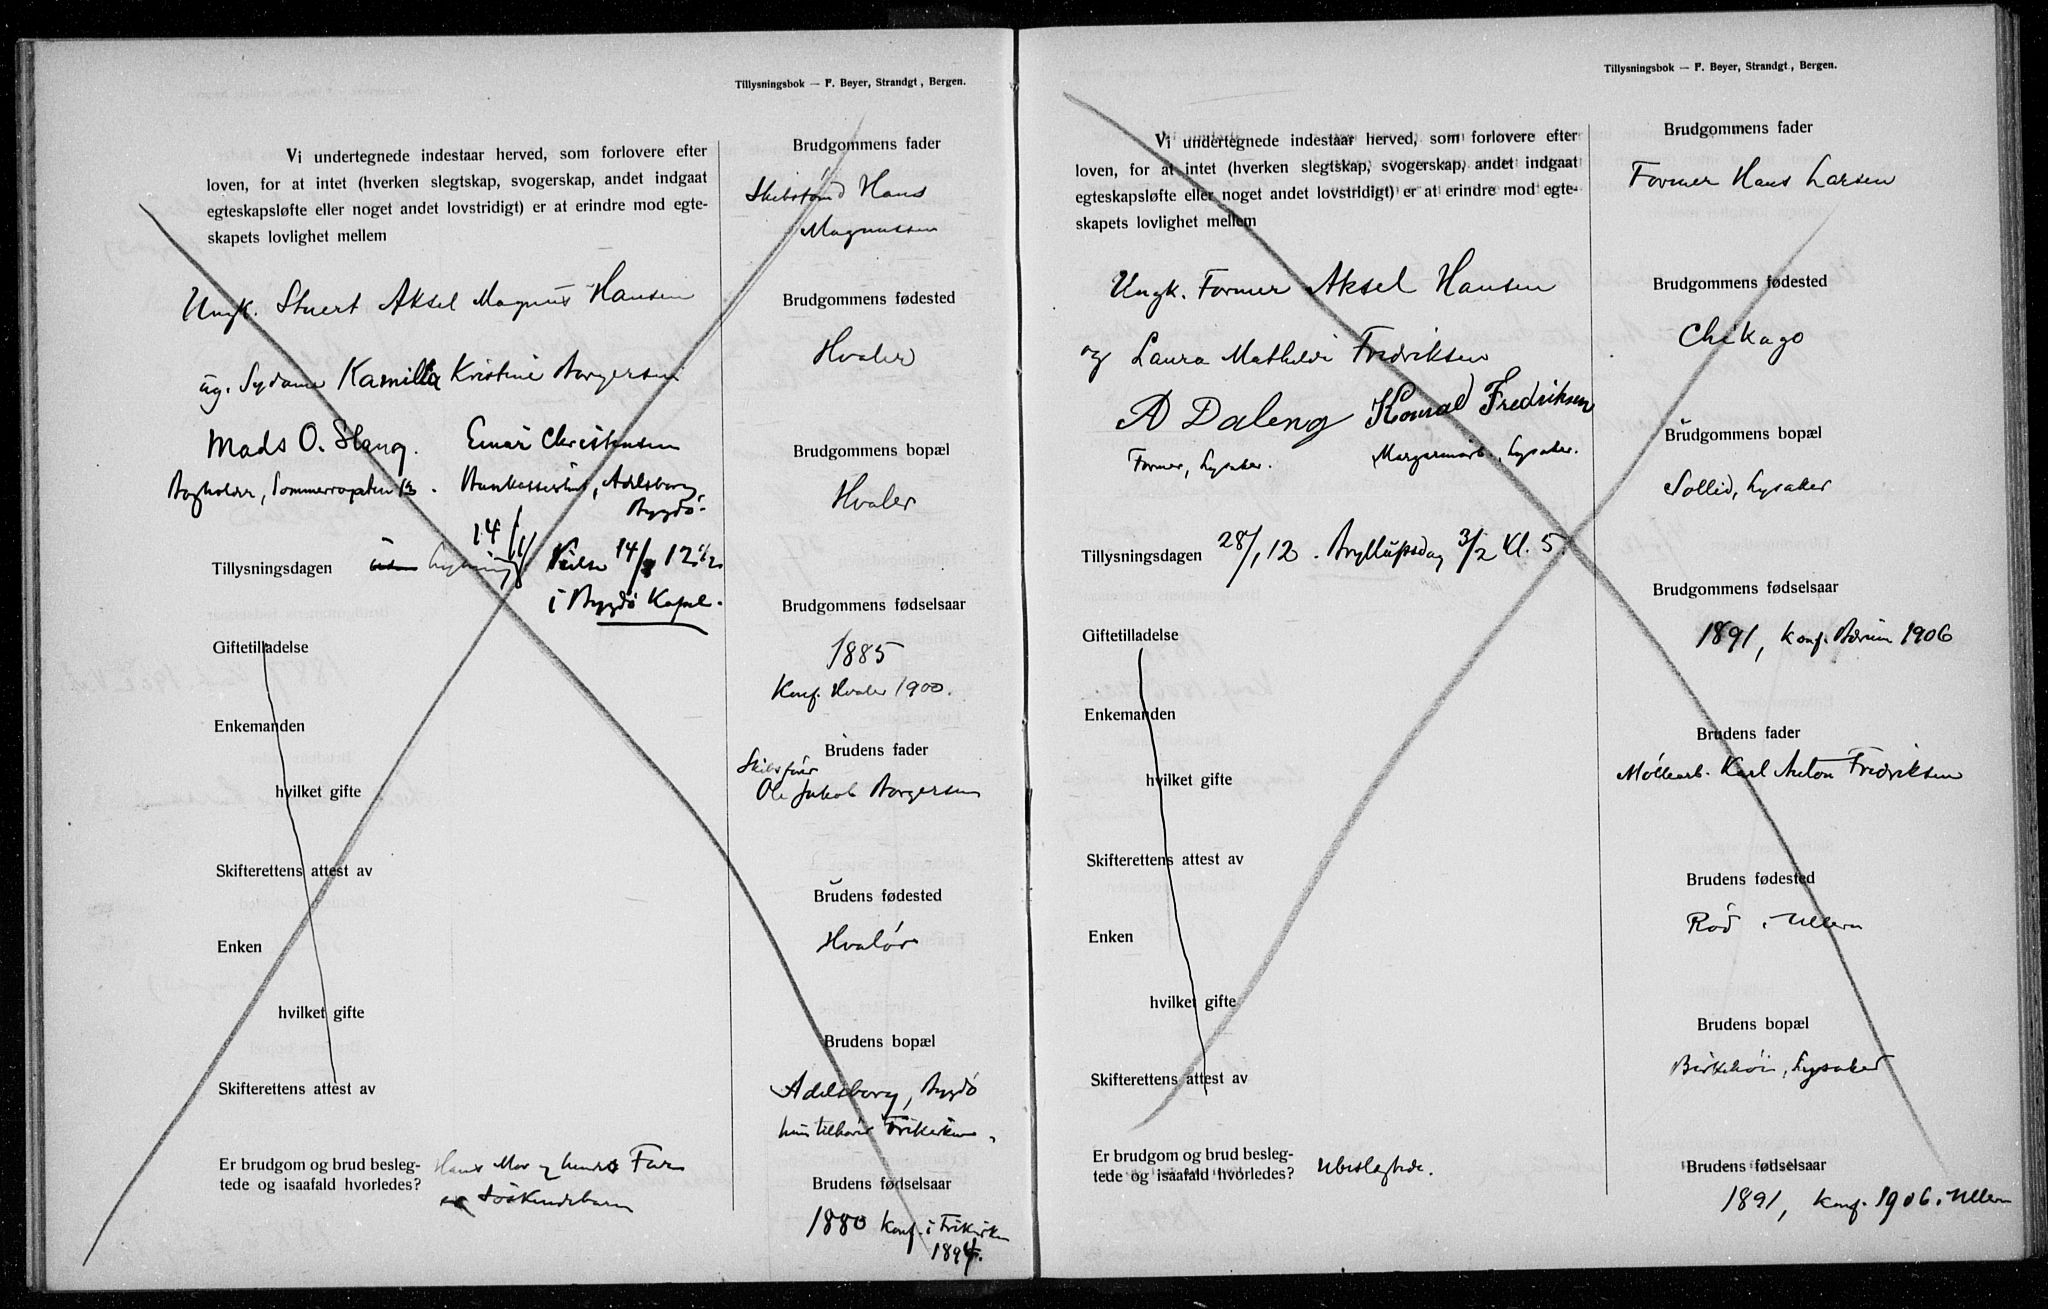 Tillysningsbok — F. Beyer, Strandgt, Bergen.
Vi undertegnede indestaar herved, som forlovere efter
loven, for at intet (hverken slegtskap, svogerskap, andet indgaat
egteskapsløfte eller noget andet lovstridigt) er at erindre mod egte-
skapets lovlighet mellem
Ungk. Stuert Aksel Magnus Hansen
ug. Sydame Kamilla Kristine Borgersen
Mads O. Slang. Einar Christensen
Sommerrogaten 13. Adelsborg,
Bygdø.
Tillysningsdagen lysning 14/1 Vielse 14/2 12 1/2
i Bygdø Kapel.
Giftetilladelse
Enkemanden
hvilket gifte
Skifterettens attest av
Enken
hvilket gifte
Skifterettens attest av
Er brudgom og brud besleg-
tede og isaafald hvorledes?
Hans Mor og hendes Far
er Søskendebarn
Brudgommens fader
Hans
Magnussen
Brudgommens fødested
Hvaler
Brudgommens bopæl
Hvaler
Brudgommens fødselsaar
1885
Konf. Hvaler 1900.
Brudens fader
Skibsfører
Ole Jakob Borgersen
Brudens fødested
Hvaler
Brudens bopæl
Adelsborg, Bygdø
hun tilhører Frikirken.
Brudens fødselsaar
1880 Konf. i Frikirken
1894.
Tillysningsbok — F. Beyer, Strandgt, Bergen.
Vi undertegnede indestaar herved, som forlovere efter
loven, for at intet (hverken slegtskap, svogerskap, andet indgaat
egteskapsløfte eller noget andet lovstridigt) er at erindre mod egte-
skapets lovlighet mellem
Ungk. Former Aksel Hansen
og Laura Mathilde Fredriksen
A Daleng Konrad Fredriksen
Former, Lysaker. Lysaker.
Tillysningsdagen 28/1 12. Bryllupsdag 3/2 Kl. 5.
Giftetilladelse
Enkemanden
hvilket gifte
Skifterettens attest av
Enken
hvilket gifte
Skifterettens attest av
Er brudgom og brud besleg-
tede og isaafald hvorledes? Ubeslegtede.
Brudgommens fader
Former Hans Larsen
Brudgommens fødested
Chikago
Brudgommens bopæl
Sollid, Lysaker
Brudgommens fødselsaar
1891, Konf. Bærum 1906
Brudens fader
Møllearb. Karl Anton Fredriksen
Brudens fødested
Rød i Ullern
Brudens bopæl
Birkehøi, Lysaker
Brudens fødselsaar
1891, Konf. 1906 i Ullern